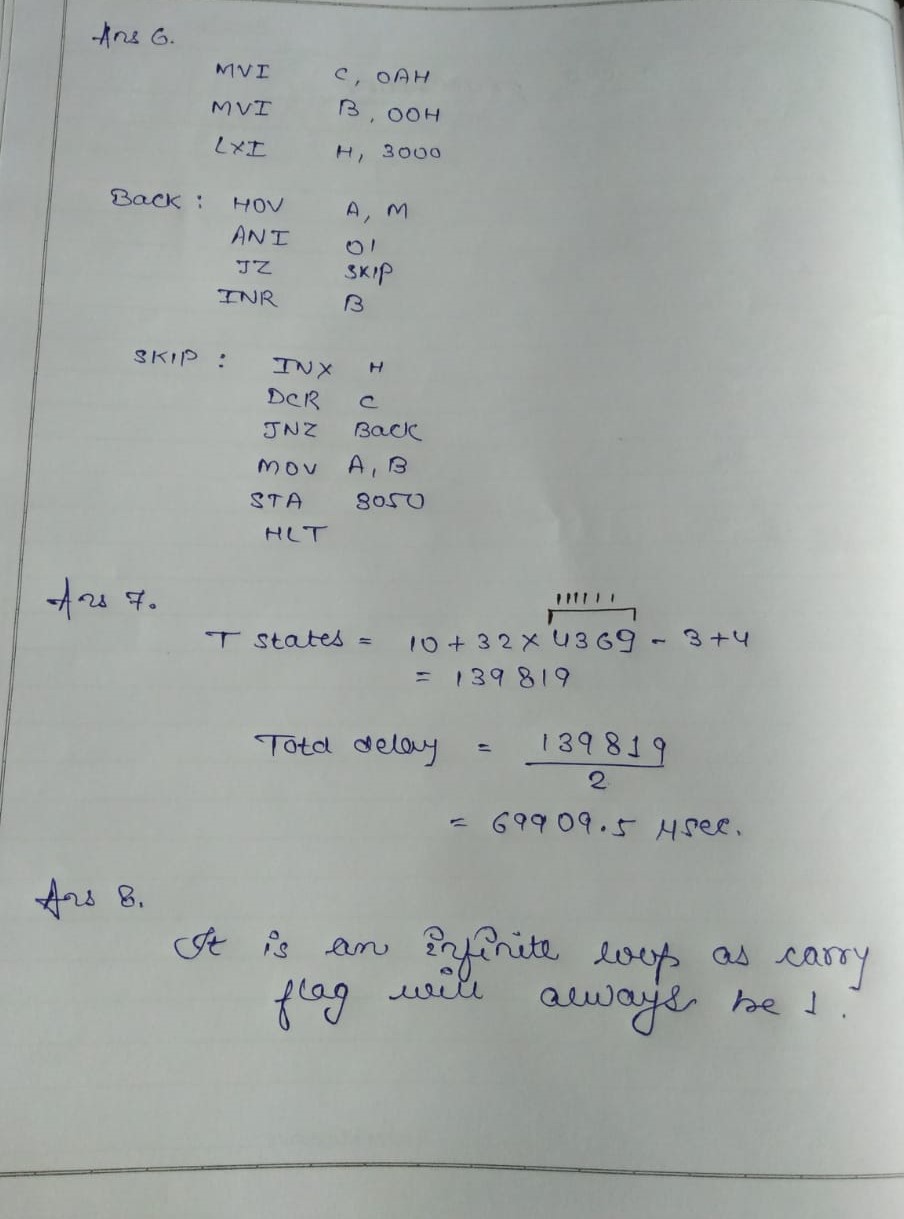 Ans 6.
MVI C, 0AH
MVI B, 00H
LXI H, 3000
Back : MOV A, M
ANI 01
JZ SKIP
INR B
SKIP : INX H
DCR C
JNZ Back
MOV A, B
STA 8050
HLT
Ans 7.
T states = 10 + 32 × 4369 - 3 + 4
= 139819
Total delay = 139819
2
= 69909.5 μsec.
Ans 8.
It is an infinite loop as carry
flag will always be 1.